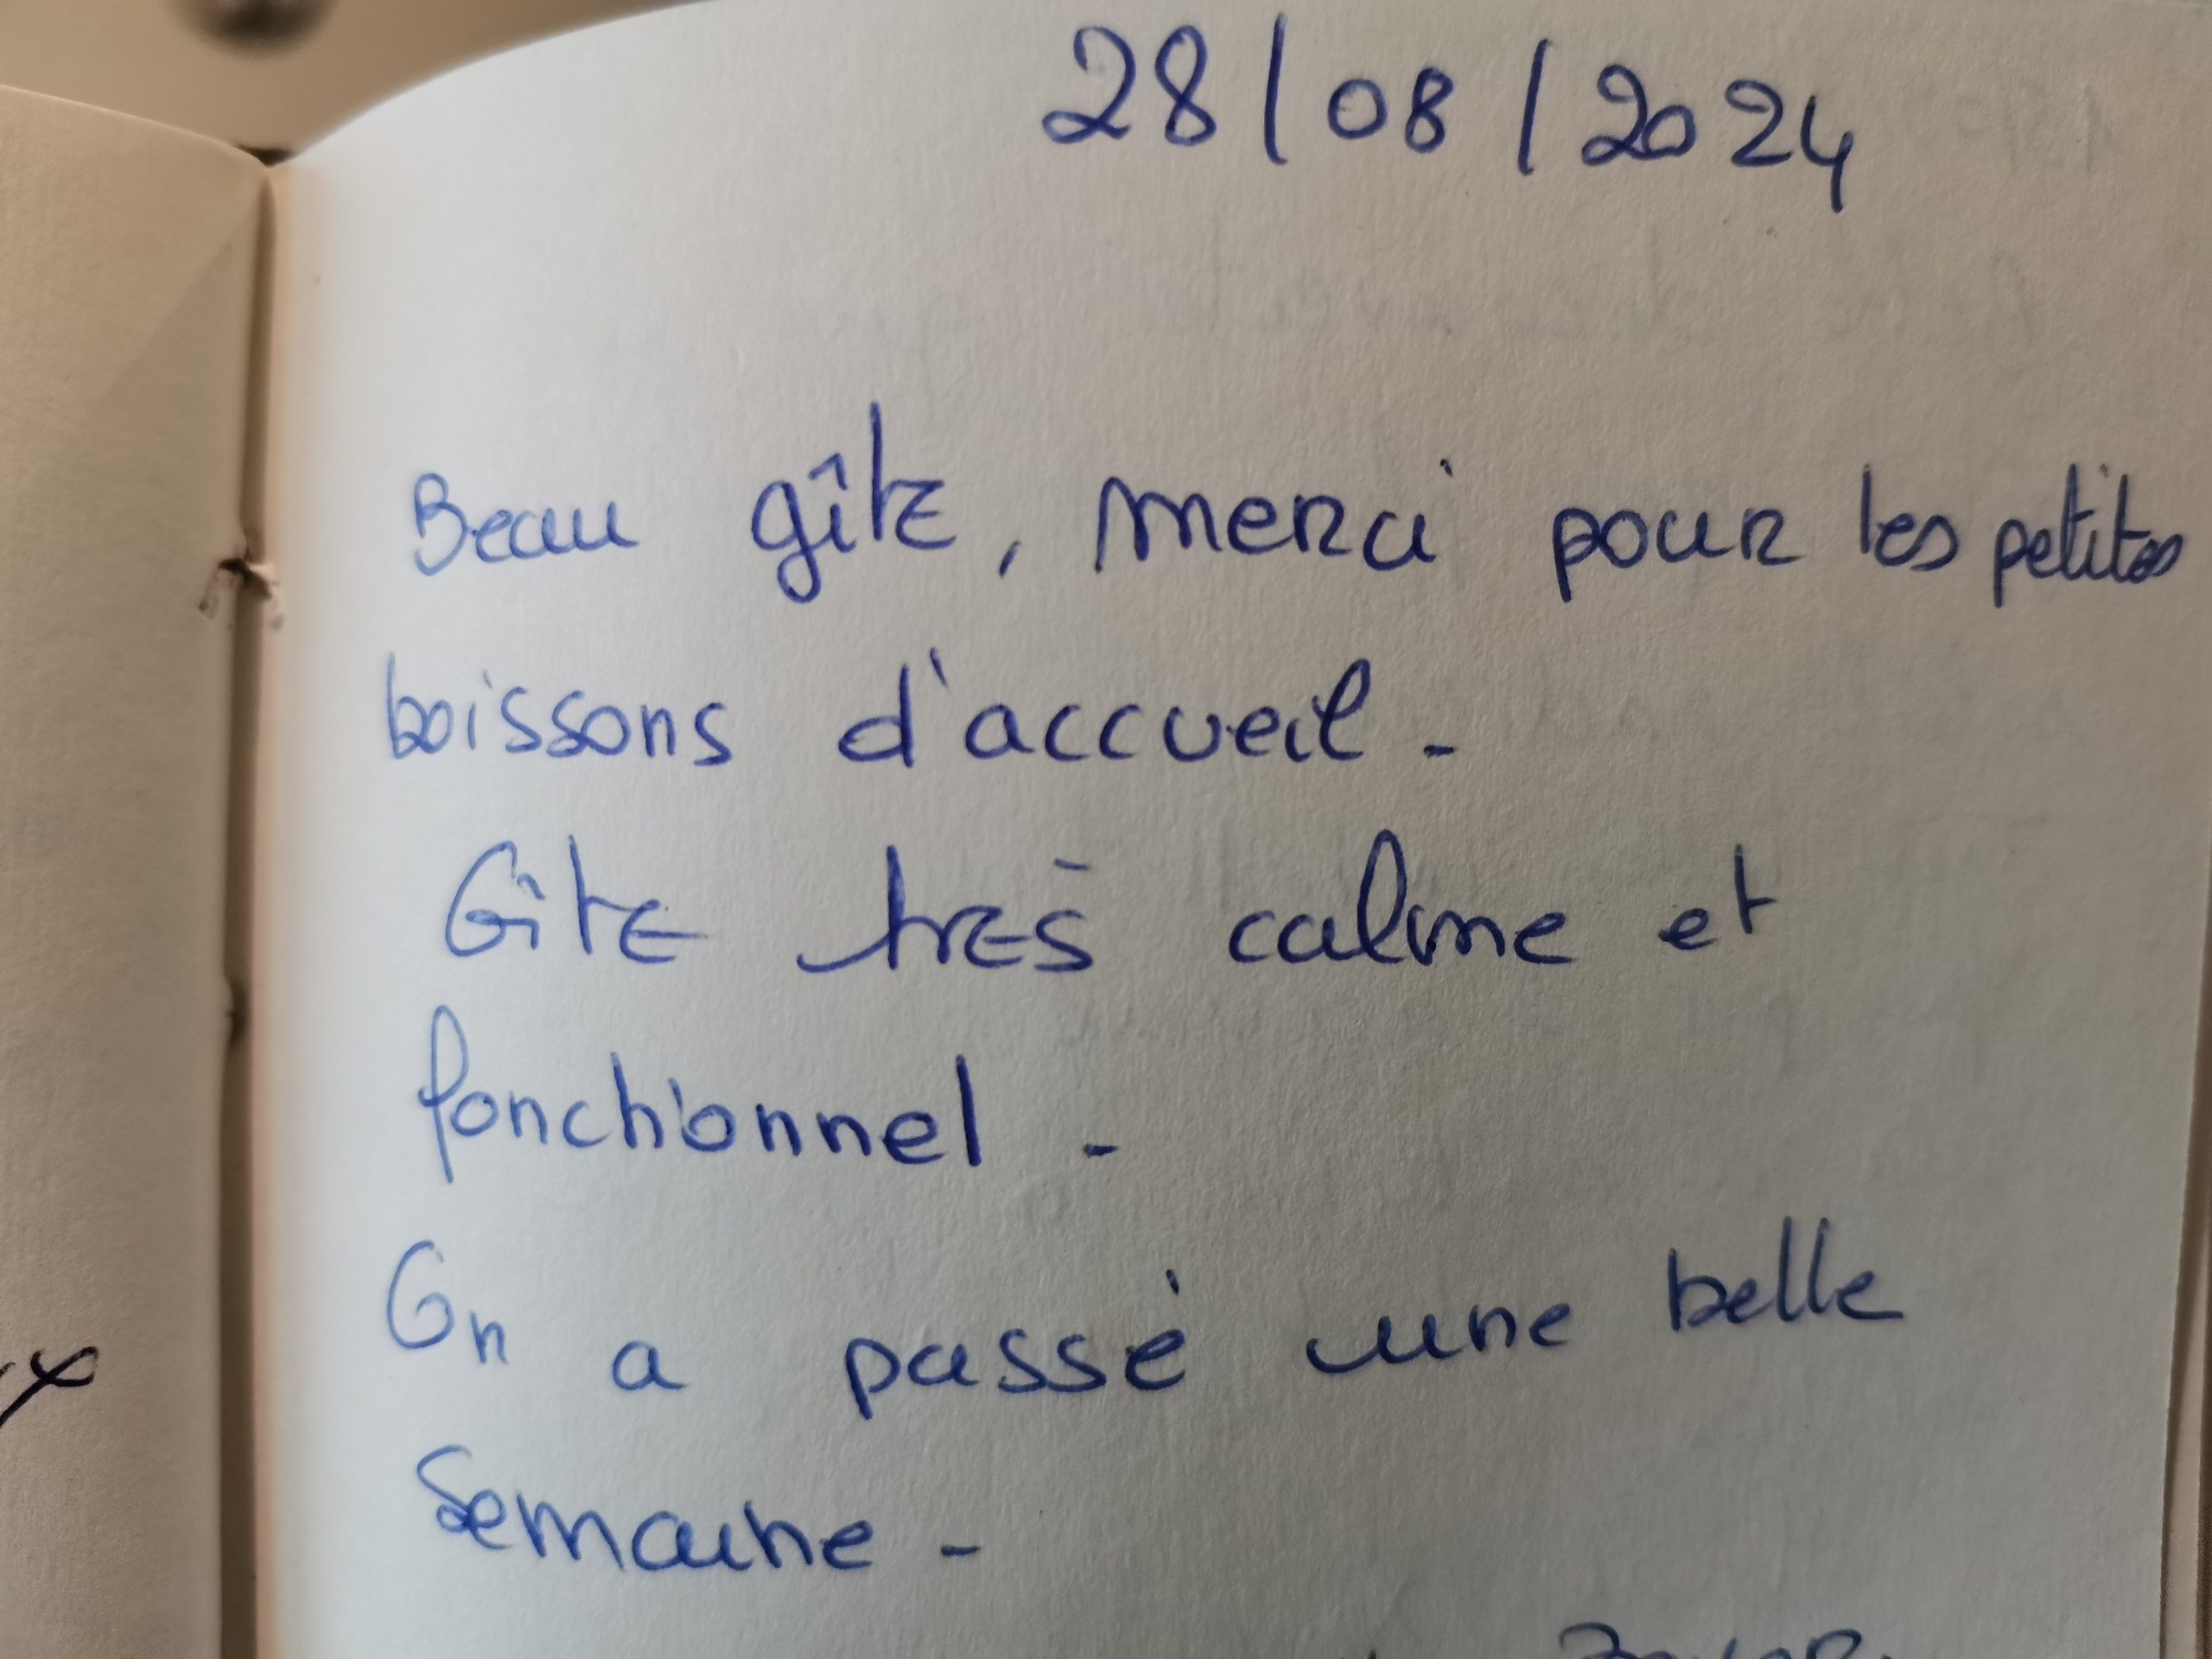 28/08/2024
Beau gîte, merci pour les petites
boissons d'accueil.
Gîte très calme et
fonctionnel.
On a passé une belle
Semaine.